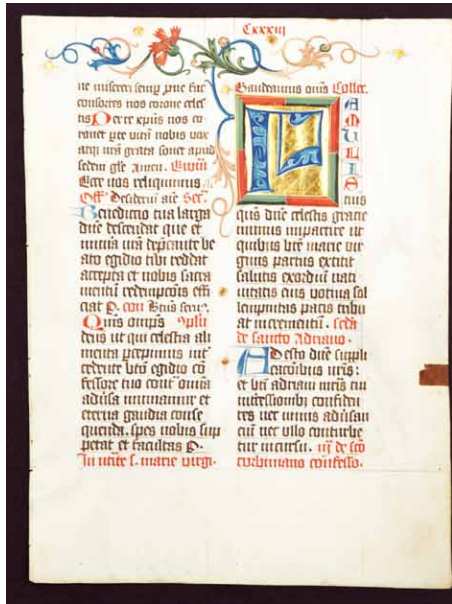 Cxxxiii
ne miseren semp
consortes nos corone celes
tis Per te xpūs nos co
sedem glē Amen. Euum
Ecce nos reliquimus
Off Desideriū aīe Secr.
Benedictio tua larga
dn̄e descendat que et
ato egidio tibi reddat
accepta et nobis sacra
mentū redempcōis effi
ciat P. cōn Btūs seru.
Quis omps 9plu
deus ut qui celestia ali
menta percepimus int
cedente bto egidio cō
fessore tuo cont omīa
adūsa muniamur et
eterna gaudia conse
quenda. spes nobis sup
petat et facultas P.
In nttē s. marie virgi.
Gaudeamus om̄s Collec.
F
AMULIS
tuis
qūs dn̄e celestis gracie
munus impartire ut
quibus btē marie vir
ginis partus extitit
salutis exordiū nati
uitatis eius votiua sol
lempnitas pacis tribu
at incrementū.
de sancto Adriano.
Adesto dn̄e suppli
cacōibus nr̄is:
et bti adriani mr̄is tui
intercessionibz confiden
tes nec minis adūsan
ciū nec ullo conturbe
tur incursu. de scō
corbiniano confesso.